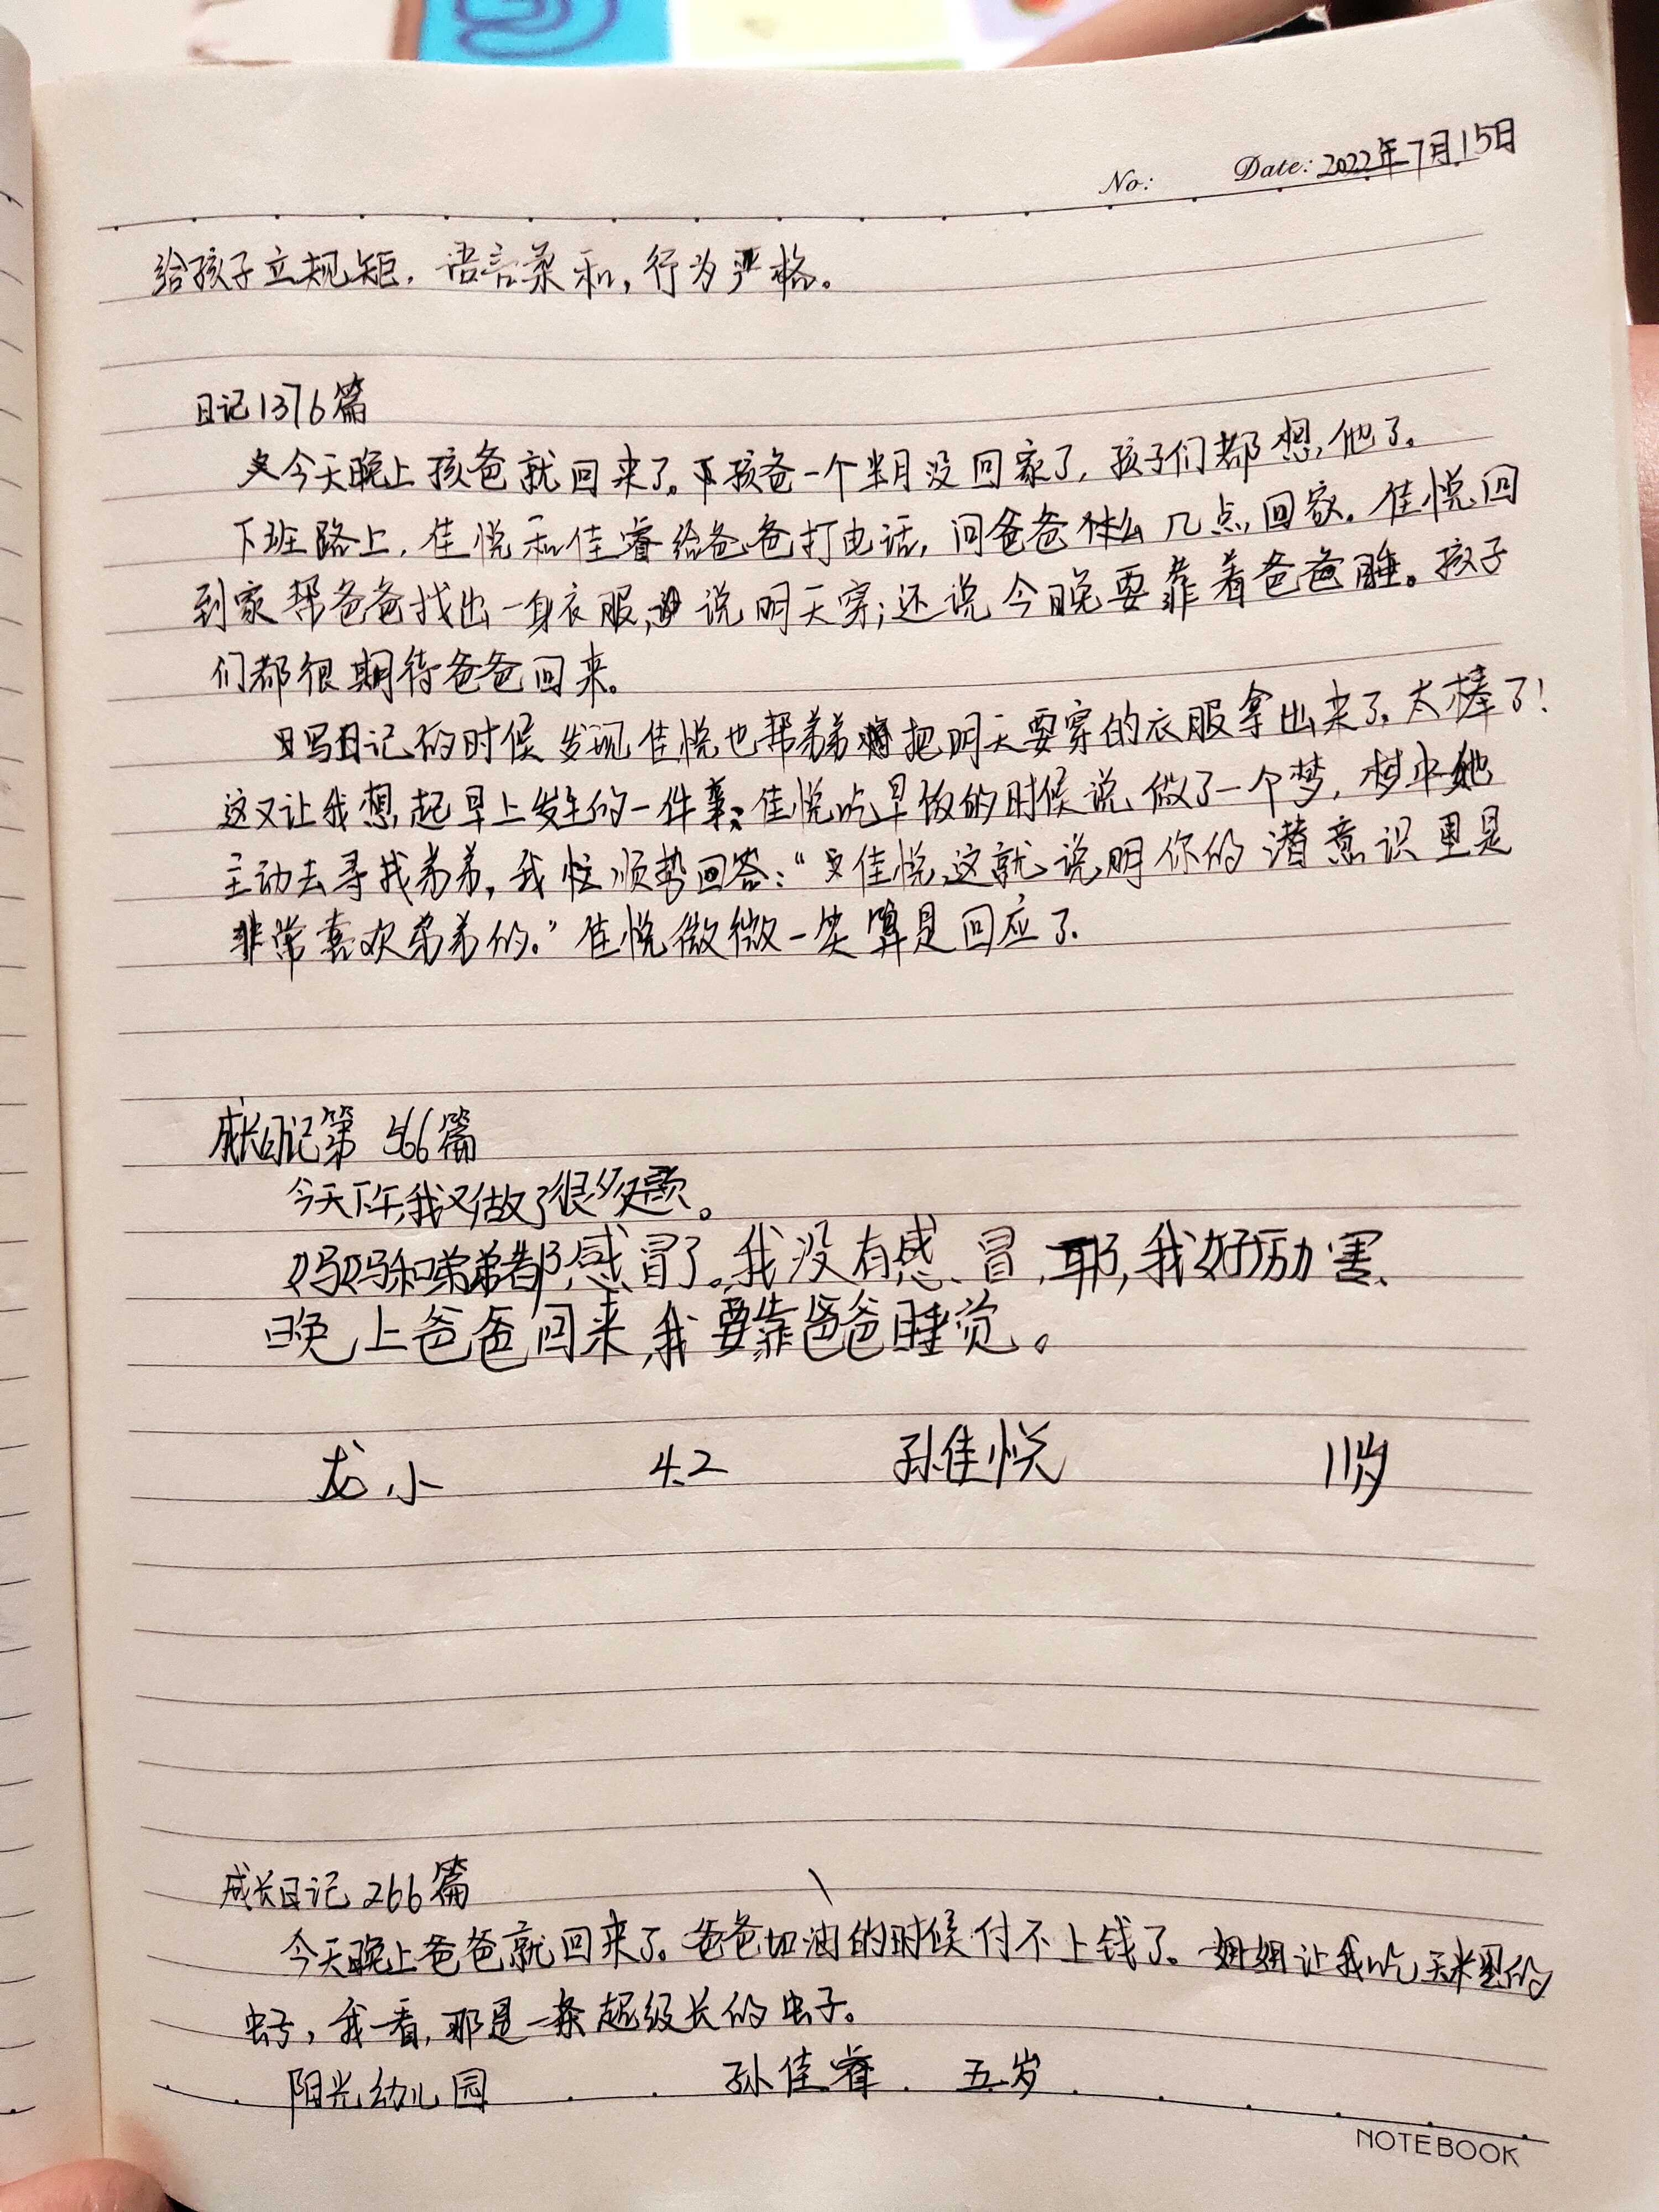 No: Date: 2022年7月15日
给孩子立规矩，语言柔和，行为严格。
日记1376篇
今天晚上孩爸就回来了。孩爸一个半月没回家了，孩子们都想他了。
下班路上，佳悦和佳睿给爸爸打电话，问爸爸 几点回家。佳悦回
到家帮爸爸找出一身衣服，说明天穿；还说今晚要靠着爸爸睡。孩子
们都很期待爸爸回来。
写日记的时候发现佳悦也帮弟弟把明天要穿的衣服拿出来了。太棒了！
这又让我想起早上发生的一件事：佳悦吃早饭的时候说做了一个梦，梦中她
主动去寻找弟弟，我忙顺势回答：“佳悦，这就说明你的潜意识里是
非常喜欢弟弟的。”佳悦微微一笑算是回应了。
成长日记第 篇
今天下午，我又做了很多题。
妈妈和弟弟都感冒了。我没有感冒，耶，我好厉害、
晚上爸爸回来，我要靠爸爸睡觉。
龙小 4.2 孙佳悦 11岁
成长日记266篇
今天晚上爸爸就回来了。爸爸加油的时候付不上钱了。姐姐让我吃玉米里的
虫子，我一看，那是一条超级长的虫子。
阳光幼儿园 孙佳睿 五岁
NOTEBOOK